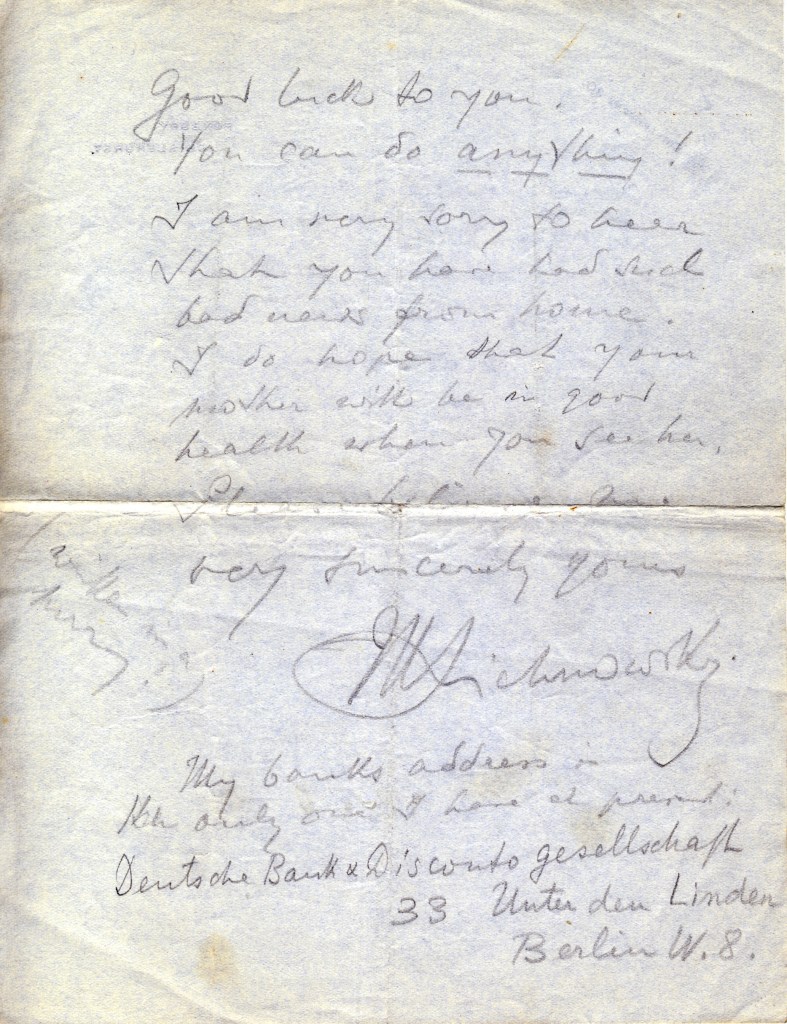 Good luck to you.
You can do anything!
I am very sorry to hear
that you have had such
bad news from home.
I do hope that your
mother will be in good
health when you see her.
Please believe me
very sincerely yours
MLichnowsky.
(written in a
hurry)
My banks address is
the only one I have at present:
Deutsche Bank & Disconto gesellschaft
33 Unter den Linden
Berlin W. 8.